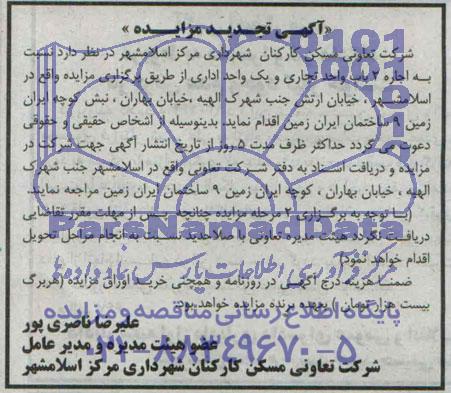 «آگهی تجدید مزایده»
شرکت تعاونی مسکن کارکنان شهرداری مرکز اسلامشهر در نظر دارد نسبت
به اجاره ۲ باب واحد تجاری و یک واحد اداری از طریق برگزاری مزایده واقع در
اسلامشهر، خیابان ارتش جنب شهرک الهیه، خیابان بهاران، نبش کوچه ایران
زمین ۹ ساختمان ایران زمین اقدام نماید. بدینوسیله از اشخاص حقیقی و حقوقی
دعوت می گردد حداکثر ظرف مدت ۵ روز از تاریخ انتشار آگهی جهت شرکت در
مزایده و دریافت اسناد به دفتر شرکت تعاونی واقع در اسلامشهر جنب شهرک
الهیه، خیابان بهاران، کوچه ایران زمین ۹ ساختمان ایران زمین مراجعه نمایند.
(با توجه به برگزاری ۲ مرحله مزایده چنانچه پس از مهلت مقرر تقاضایی
دریافت نگردد هیئت مدیره تعاونی با صلاحدید نسبت به انجام مراحل تحویل
اقدام خواهد نمود)
ضمنا هزینه درج آگهی در روزنامه و همچنین خرید اوراق مزایده (هربرگ
بیست هزار تومان) بعهده برنده مزایده خواهد بود.
علیرضا ناصری پور
عضو هیئت مدیره و مدیر عامل
شرکت تعاونی مسکن کارکنان شهرداری مرکز اسلامشهر
ParsNamadData
مرکز فرآوری اطلاعات پارس نماد داده ها
پایگاه اطلاع رسانی مناقصه و مزایده
۰۲۱-۸۸۳۴۹۶۷۰-۵